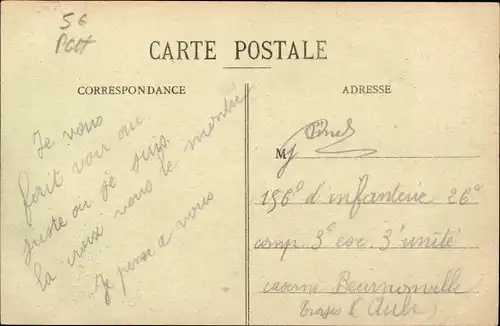 56
PCH
CARTE POSTALE
CORRESPONDANCE
ADRESSE
Je vous
fait voir au
juste ou je suis
la croix vous le montre
Je pense a vous
M Pinel
156e d'infanterie 26e
comp. 3e esc. 3e unité
caserne Beurnonville
Troyes (Aube)